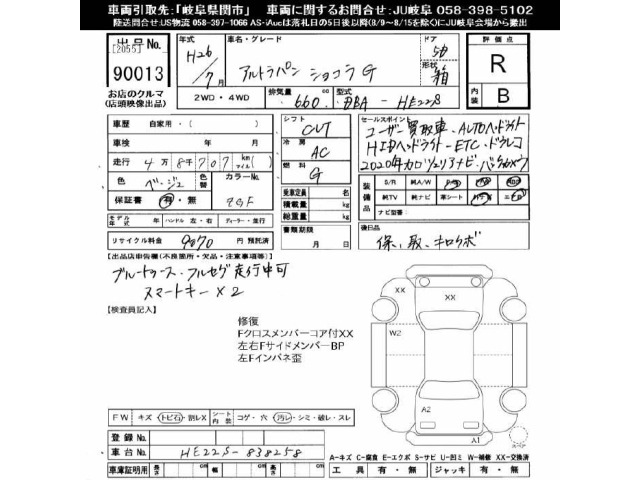 車両引取先:「岐阜県関市」 車両に関するお問合せ:JU岐阜 058-398-5102
陸送問合せ:US物流 058-397-1066 AS-iAucは落札日の5日後以降(8/9～8/15を除く)にJU岐阜会場から搬出
出品No. [2055] 90013
お店のクルマ (店頭映像出品)
年式 H26/7月
車名・グレード アルトラパン ショコラG
ドア 5D
形状 箱
2WD・4WD
排気量 660 cc
型式 DBA-HE22S
評価点 R
内装 B
車歴 自家用・( )
車検 年 月
走行 4万8千707 km(マイル)
色 ベージュ
色替
カラーNo. ZGF
保証書 有・無
モデル年式 年 ハンドル 左・右 ディーラー・並行
リサイクル料金 9870 円 預託済
シフト CVT
冷房 AC
燃料 G
乗車定員 名
積載量 kg
総重量 kg
書類期限 月 日
セールスポイント
ユーザー買取車・AUTOヘッドライト
HIDヘッドライト・ETC・ドラレコ
2020年カロッツェリアナビ・バックカメラ
装備品
S/R 純A/W
純TV 純ナビ 革シート
ナビ型番
後日品
保、取、キロクボ
[出品店申告欄(不良箇所・欠品・注意事項等)]
ブルートゥース・フルセグ走行中可
スマートキー×2
[検査員記入]
修復
Fクロスメンバーコア付XX
左右FサイドメンバーBP
左Fインパネ歪
XX
XX
W2
A2
A1
スペア
FW キズ・トビ石・割レX
シート内装 コゲ・穴・汚レ・シミ・破レ・スレ
登録No.
車台No. HE22S-838258
車庫証明用 長さ cm 幅 cm 高さ cm
A-キズ C-腐食 E-エクボ S-サビ U-凹ミ W-補修 XX-交換済
工具 有・無 ジャッキ 有・無